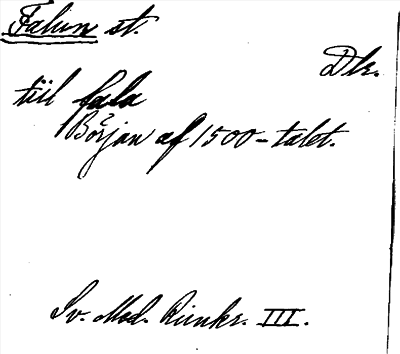 Falun st.
Dlr.
till fala
Början af 1500-talet.
Sv. Med. Rimkr. III.